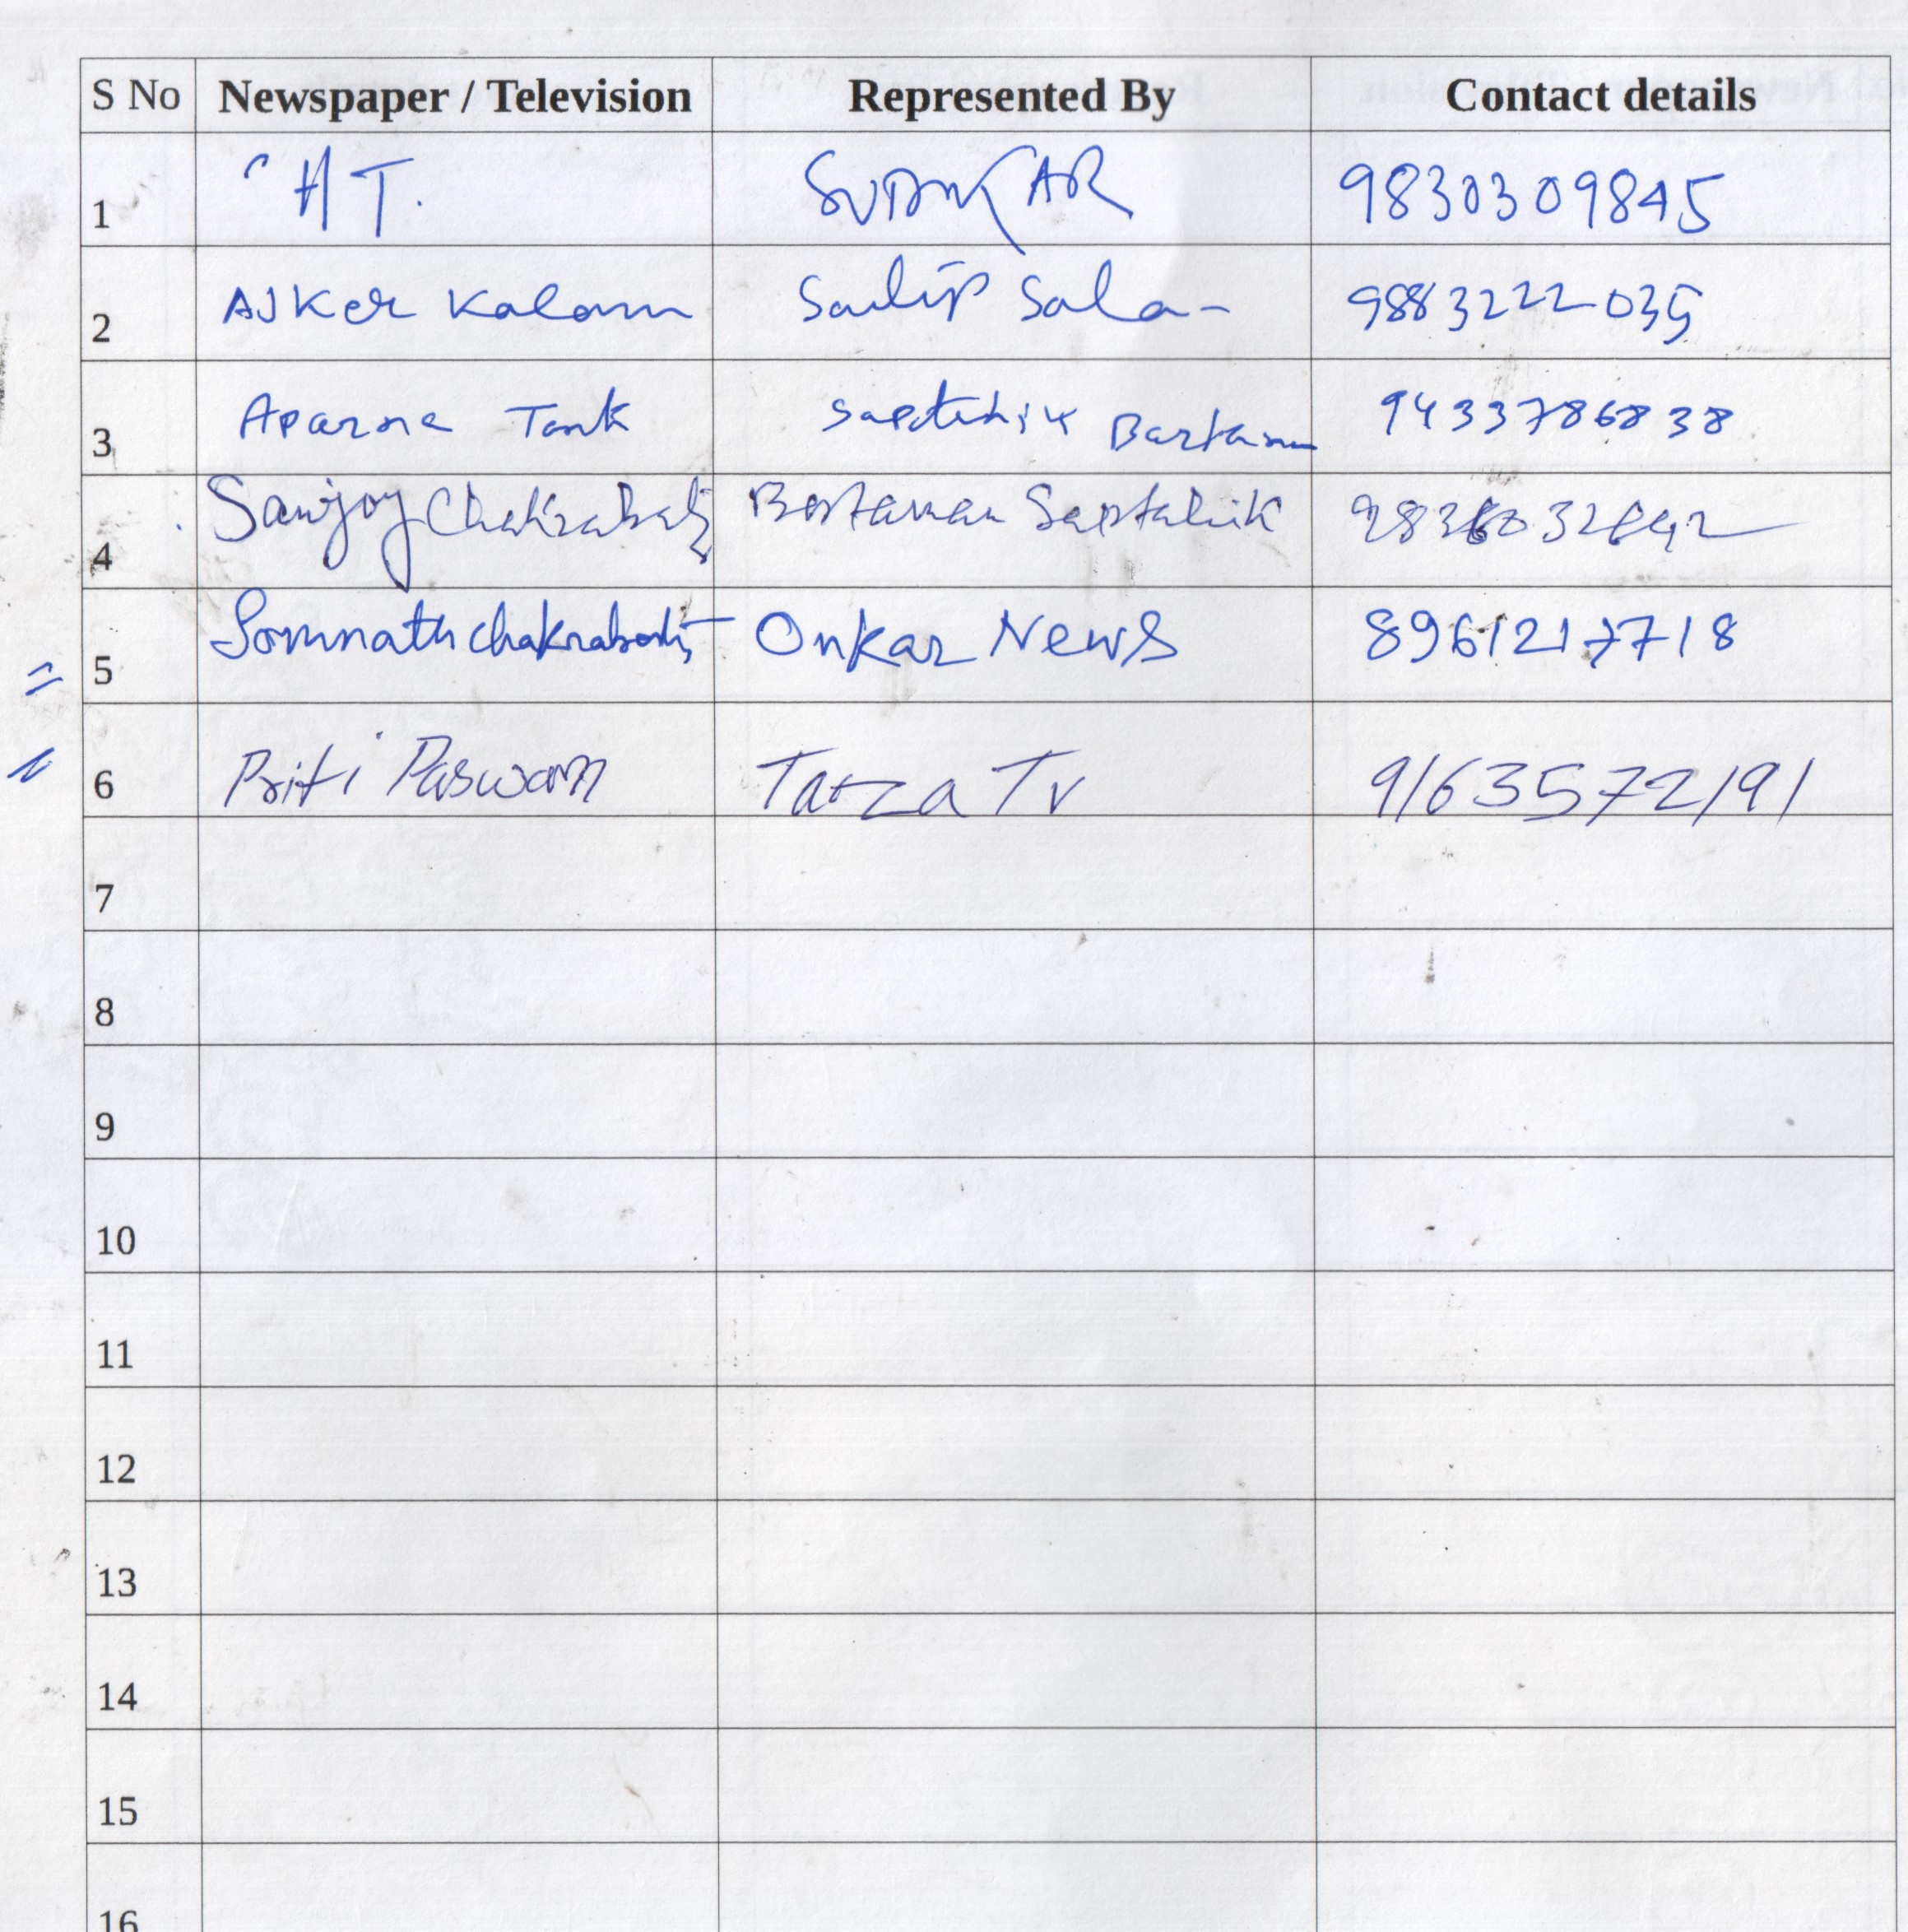 S No Newspaper / Television Represented By Contact details
1 HT. 9830309845
2 AJKer Kalom Sala- 9883222035
3 Aparna Tank Saptahik Bartaman 9433786838
4 Sanjoy Chakrabarty Bartaman Saptahik
5 Somnath chakraborty Onkar News 8961217718
6 Priti Paswan Taaza Tv 9163572191
7
8
9
10
11
12
13
14
15
16